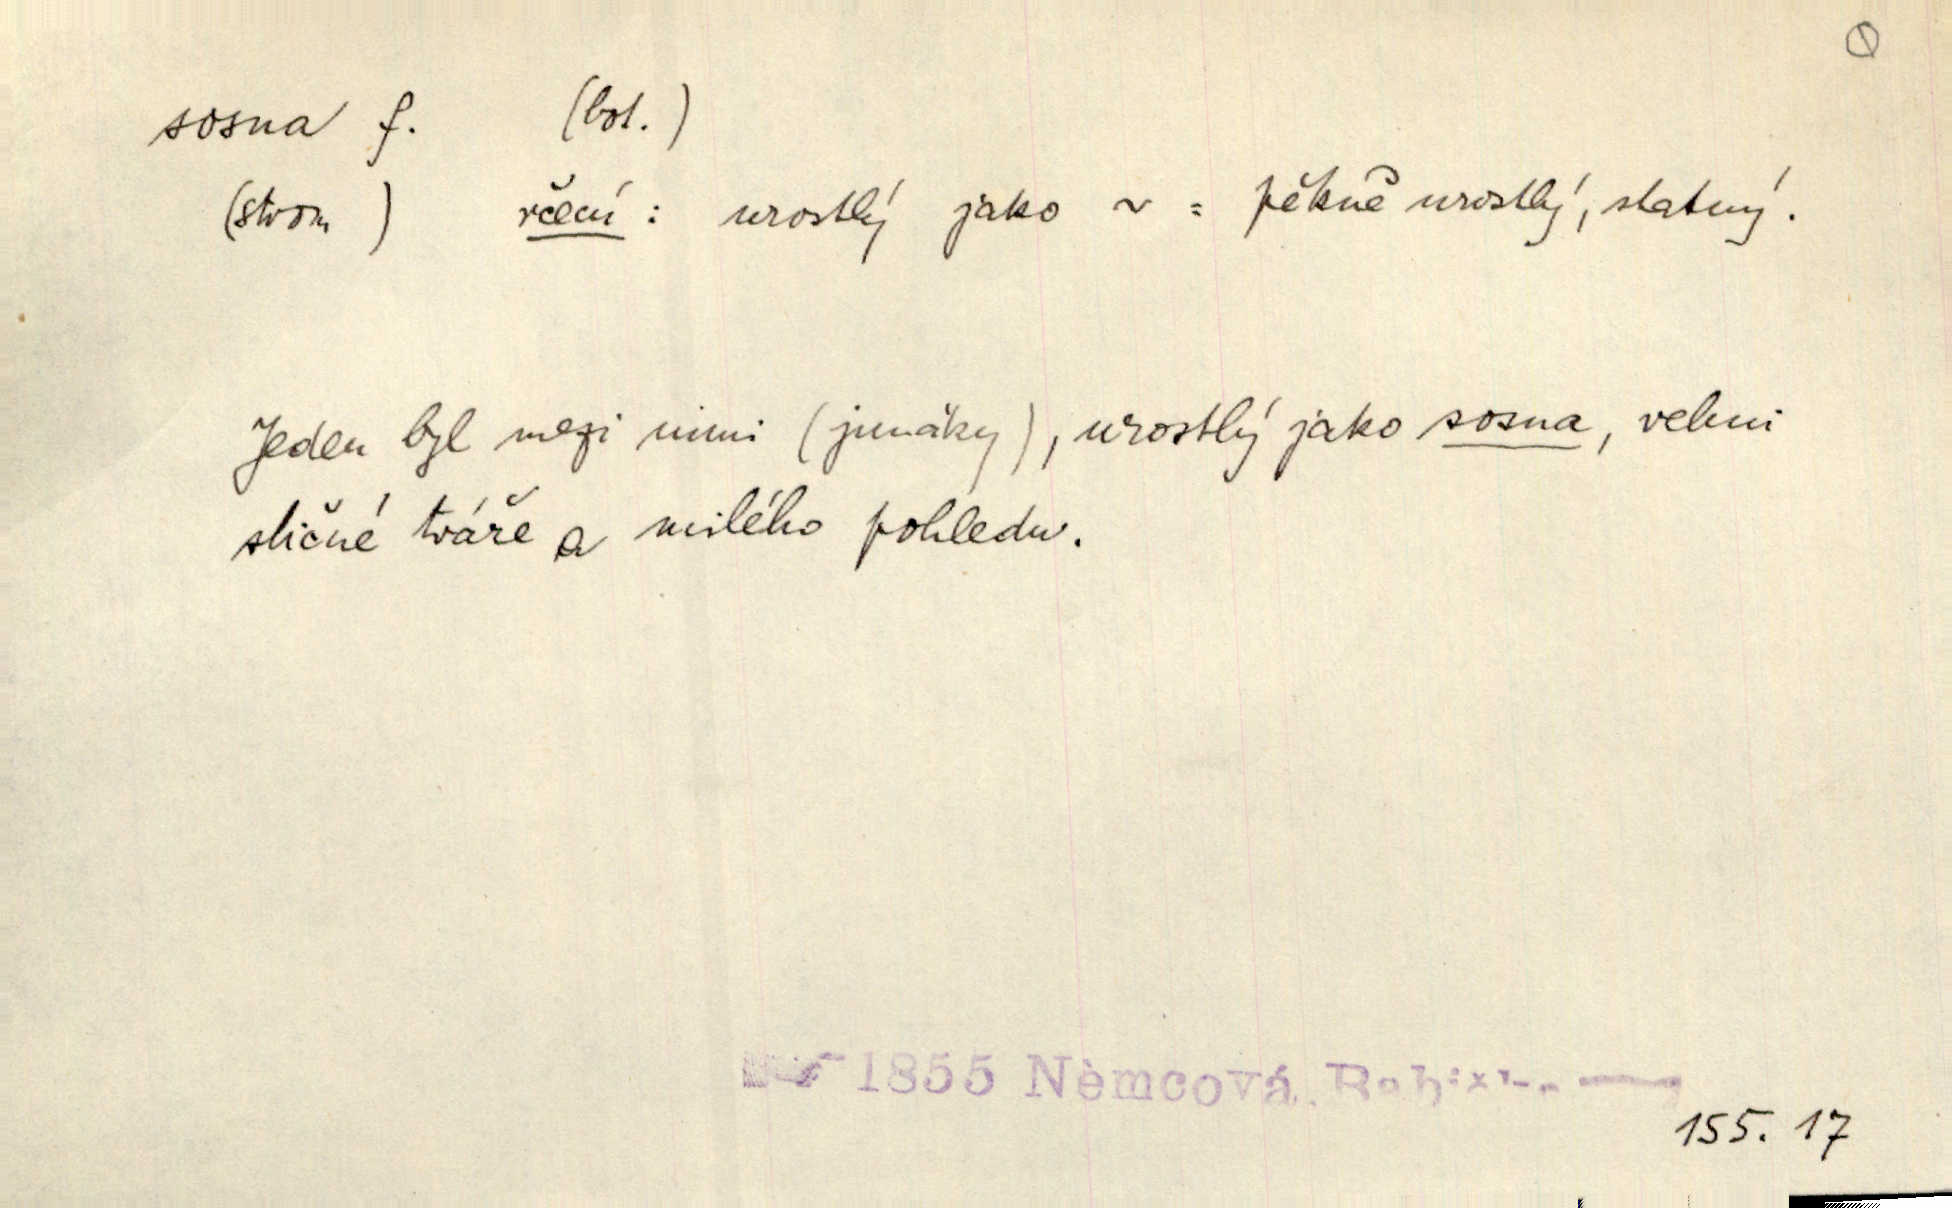 sosna f. (bot.)
(strom ) rčení : urostlý jako ~ = pěkně urostlý, statný.
Jeden byl mezi nimi (junáky), urostlý jako sosna, velmi
sličné tváře a milého pohledu.
1855 Němcová,
155. 17